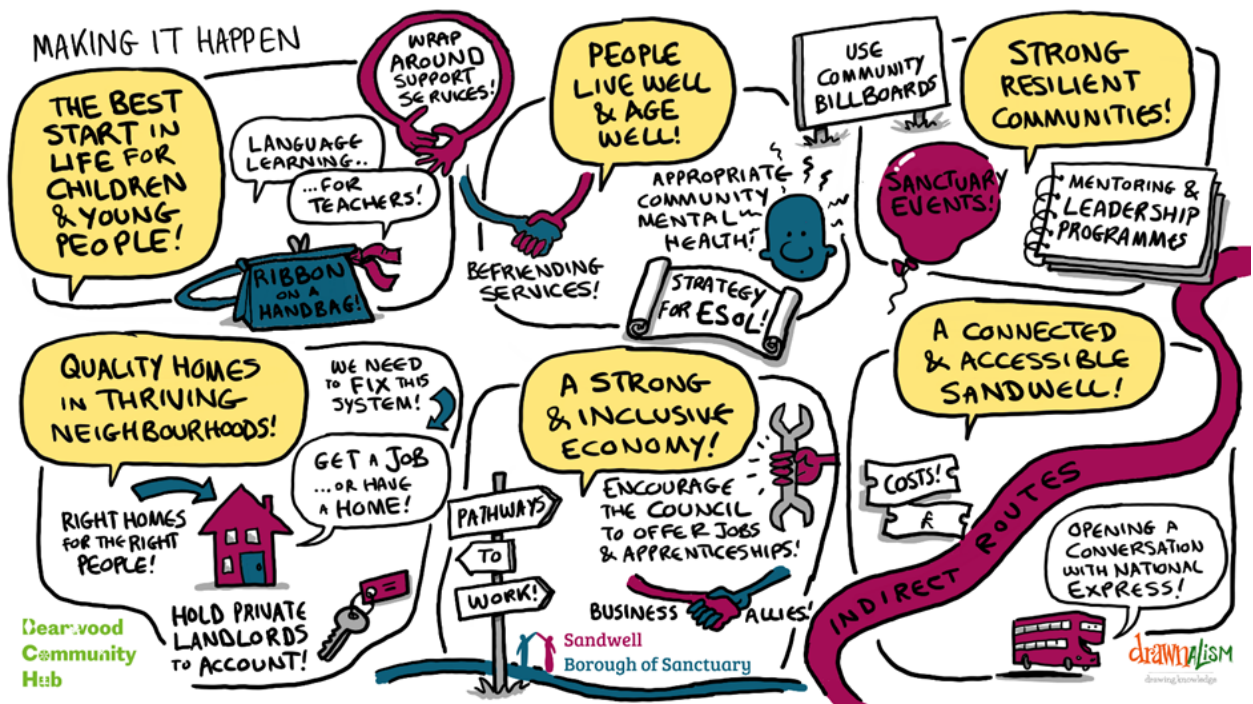 MAKING IT HAPPEN
THE BEST
START IN
LIFE FOR
CHILDREN
& YOUNG
PEOPLE!
WRAP
AROUND
SUPPORT
SERVICES!
LANGUAGE
LEARNING..
...FOR
TEACHERS!
RIBBON
ON A
HANDBAG!
PEOPLE
LIVE WELL
& AGE
WELL!
BEFRIENDING
SERVICES!
APPROPRIATE
COMMUNITY
MENTAL
HEALTH!
STRATEGY
FOR ESOL!
USE
COMMUNITY
BILLBOARDS
STRONG
RESILIENT
COMMUNITIES!
SANCTUARY
EVENTS!
MENTORING &
LEADERSHIP
PROGRAMMES
QUALITY HOMES
IN THRIVING
NEIGHBOURHOODS!
WE NEED
TO FIX THIS
SYSTEM!
GET A JOB
...OR HAVE
A HOME!
RIGHT HOMES
FOR THE RIGHT
PEOPLE!
HOLD PRIVATE
LANDLORDS
TO ACCOUNT!
A STRONG
& INCLUSIVE
ECONOMY!
PATHWAYS
TO
WORK!
ENCOURAGE
THE COUNCIL
TO OFFER JOBS
& APPRENTICESHIPS!
BUSINESS ALLIES!
A CONNECTED
& ACCESSIBLE
SANDWELL!
COSTS!
£
INDIRECT ROUTES
OPENING A
CONVERSATION
WITH NATIONAL
EXPRESS!
Bearwood
Community
Hub
Sandwell
Borough of Sanctuary
drawnalism
drawing knowledge